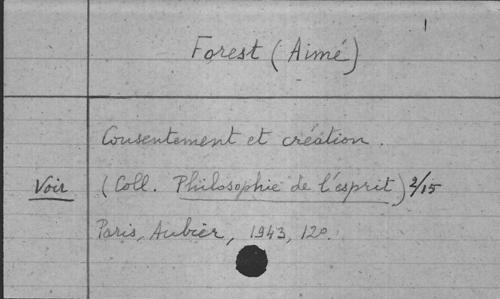 Forest (Aimé)
Consentement et création.
Voir (Coll. Philosophie de l'esprit) 2/15
Paris, Aubier, 1943, 12º.